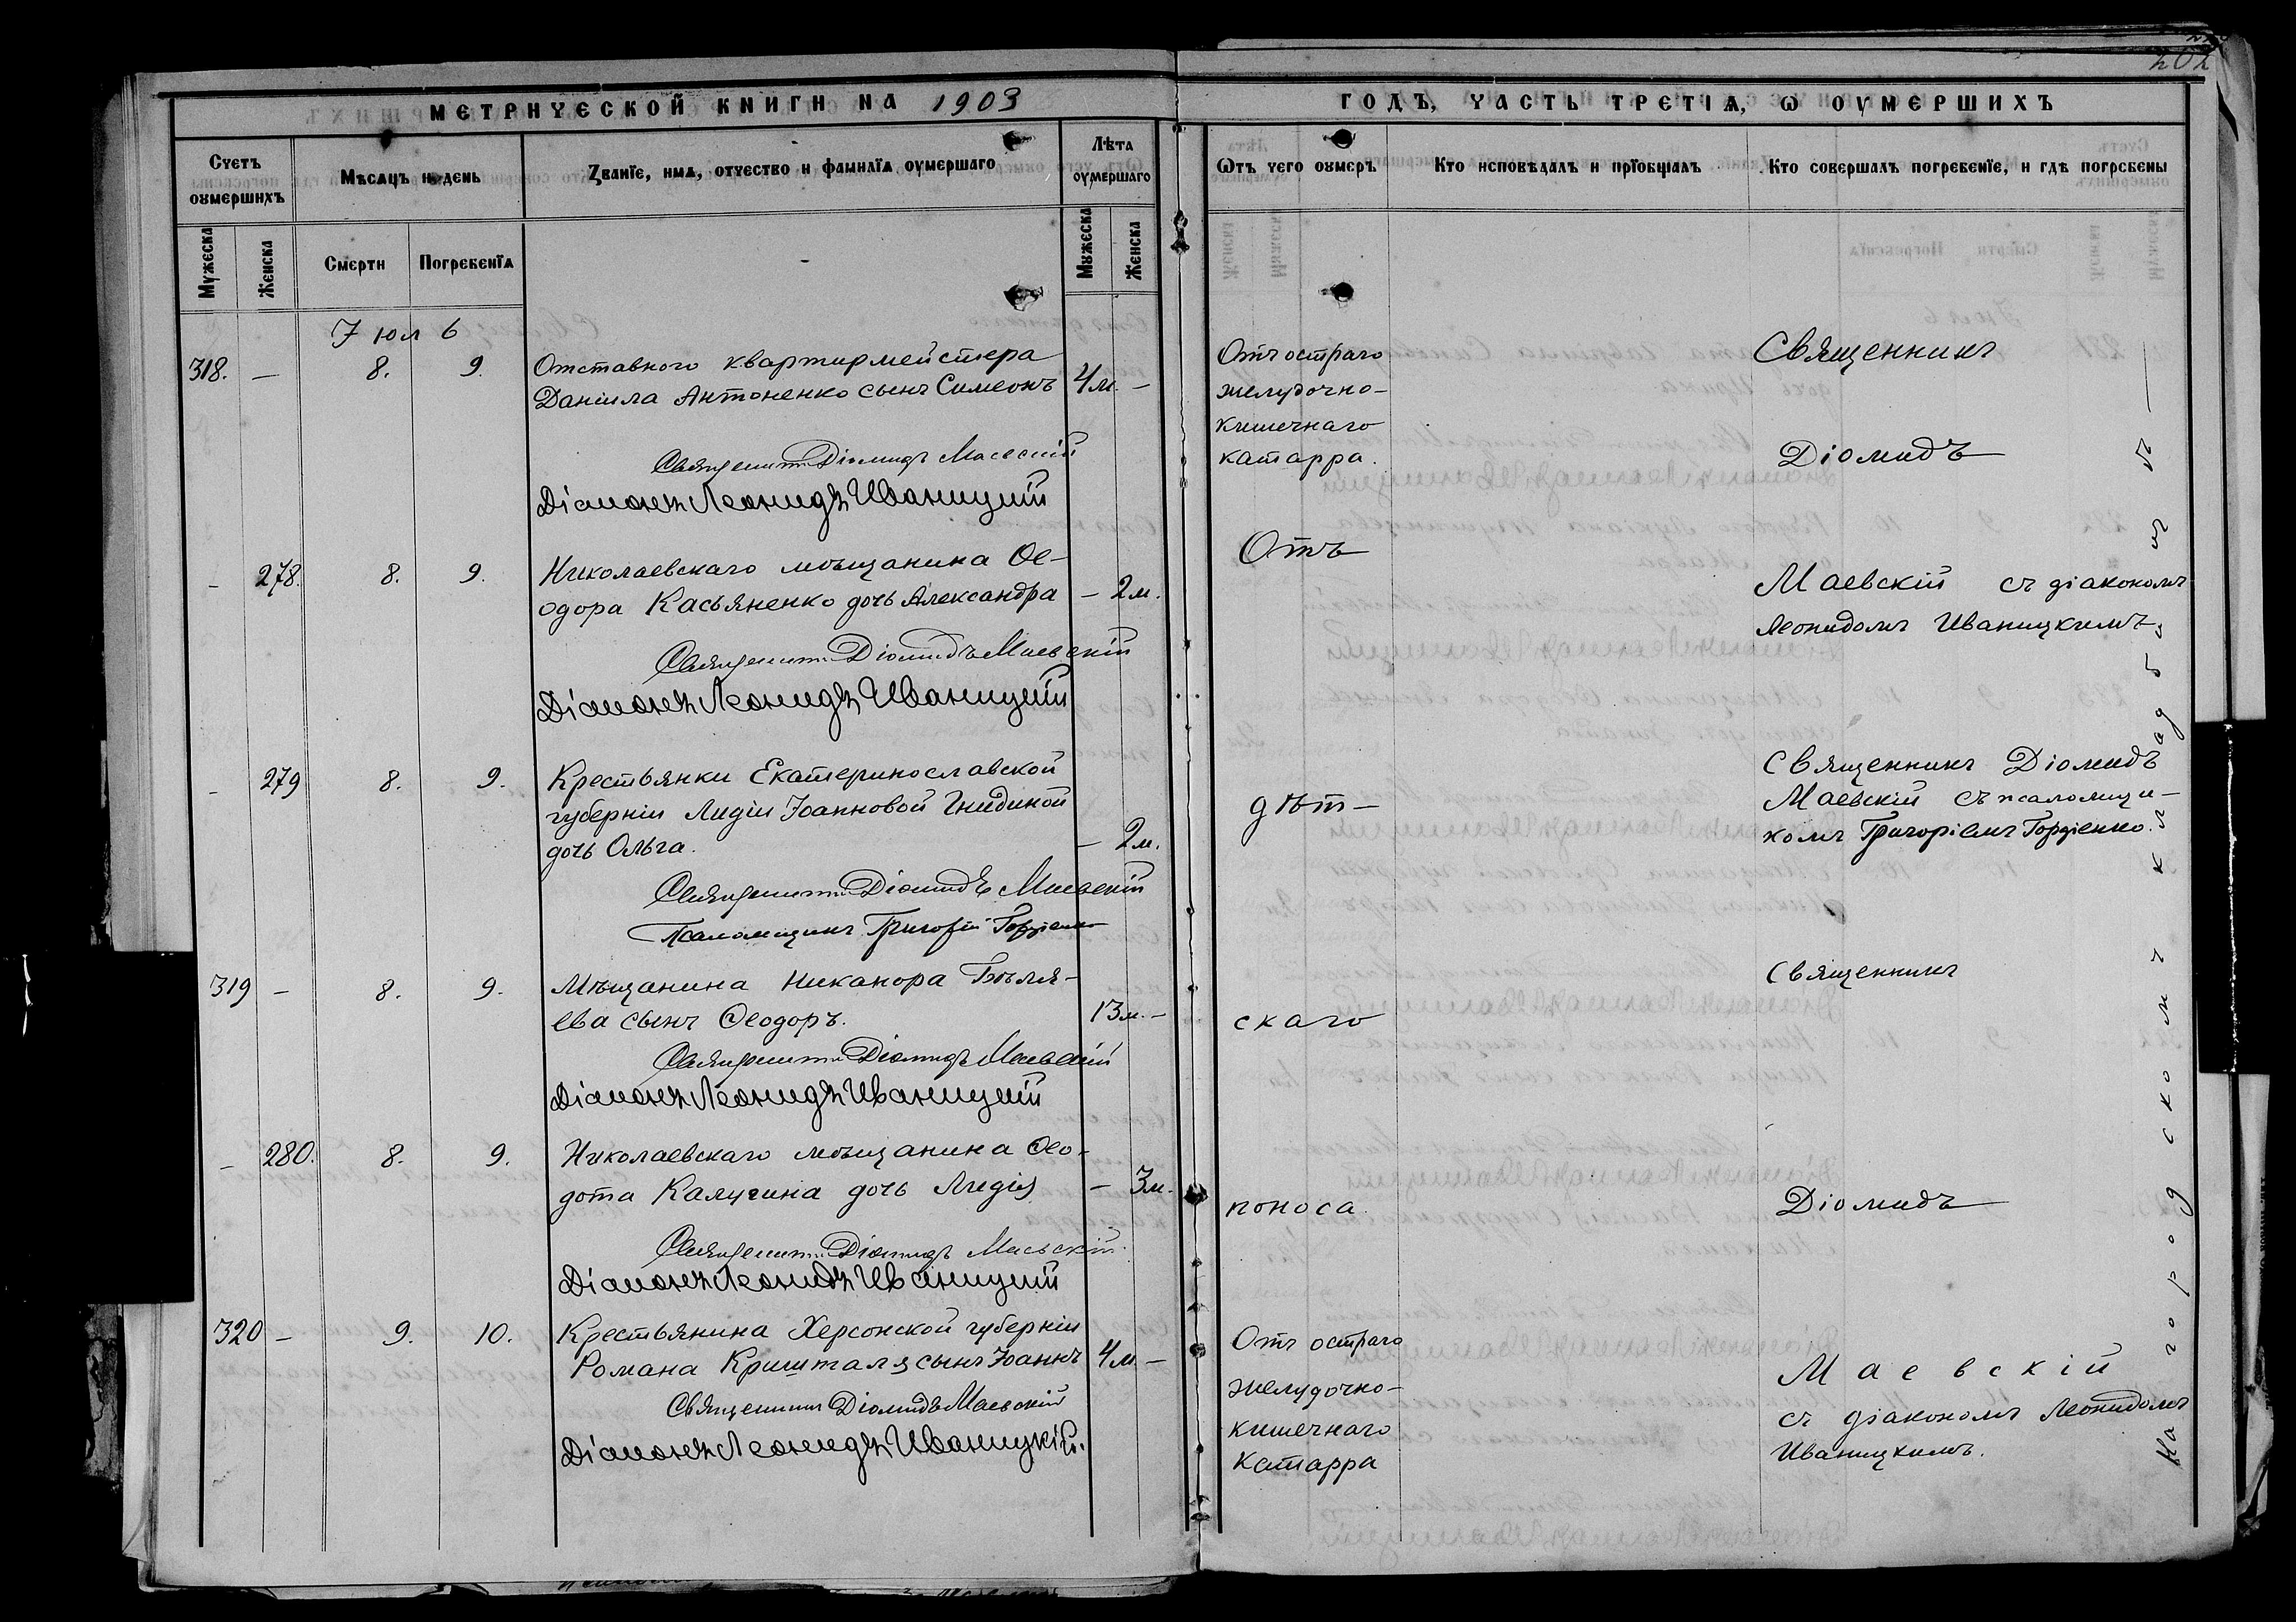 202
МЕТРИЧЕСКОЙ КНИГИ НА 1903
ГОДЪ, ЧАСТЬ ТРЕТІѦ, Ѡ ОУМЕРШИХЪ
Счетъ оумершихъ
Мѣсяцъ и день
Званїе, имѧ, отчество и фамилїѧ оумершаго
Лѣта оумершаго
Ѿтъ чего оумеръ
Кто исповѣдалъ и прїобщалъ
Кто совершалъ погребенїе, и гдѣ погребены
Мужеска
Женска
Смерти
Погребенїѧ
Мужеска
Женска
Іюль
318. — 8. 9. Отставного квартирмейстера
Даніила Антоненко сынъ Симеонъ 4 м. —
Священникъ Діомидъ Маевскій
Діаконъ Леонидъ Иваницкій
— 278. 8. 9. Николаевскаго мѣщанина Ѳе-
одора Касьяненко дочь Александра — 2 м.
Священникъ Діомидъ Маевскій
Діаконъ Леонидъ Иваницкій
— 279 8. 9. Крестьянки Екатеринославской
губерніи Лидіи Іоанновой Гнидиной
дочь Ольга. — 2 м.
Священникъ Діомидъ Маевскій
Псаломщикъ Григорій Гордіенко
319 — 8. 9. Мѣщанина Никанора Бѣля-
ева сынъ Ѳеодоръ. 13 м. —
Священникъ Діомидъ Маевскій
Діаконъ Леонидъ Иваницкій
— 280. 8. 9. Николаевскаго мѣщанина Ѳео-
дота Калугина дочь Лидія — 3 м.
Священникъ Діомидъ Маевскій
Діаконъ Леонидъ Иваницкій
320 — 9. 10. Крестьянина Херсонской губерніи
Романа Кришталя сынъ Іоаннъ 4 м —
Священникъ Діомидъ Маевскій
Діаконъ Леонидъ Иваницкій.
Отъ остраго
желудочно-
кишечнаго
катарра.
Отъ
дѣт-
скаго
поноса.
Отъ остраго
желудочно-
кишечнаго
катарра
Священникъ
Діомидъ
Маевскій съ діакономъ
Леонидомъ Иваницкимъ
Священникъ Діомидъ
Маевскій съ псаломщи-
комъ Григоріемъ Гордіенко.
Священникъ
Діомидъ
Маевскій
съ діакономъ Леонидомъ
Иваницкимъ.
На городскомъ кладбищѣ